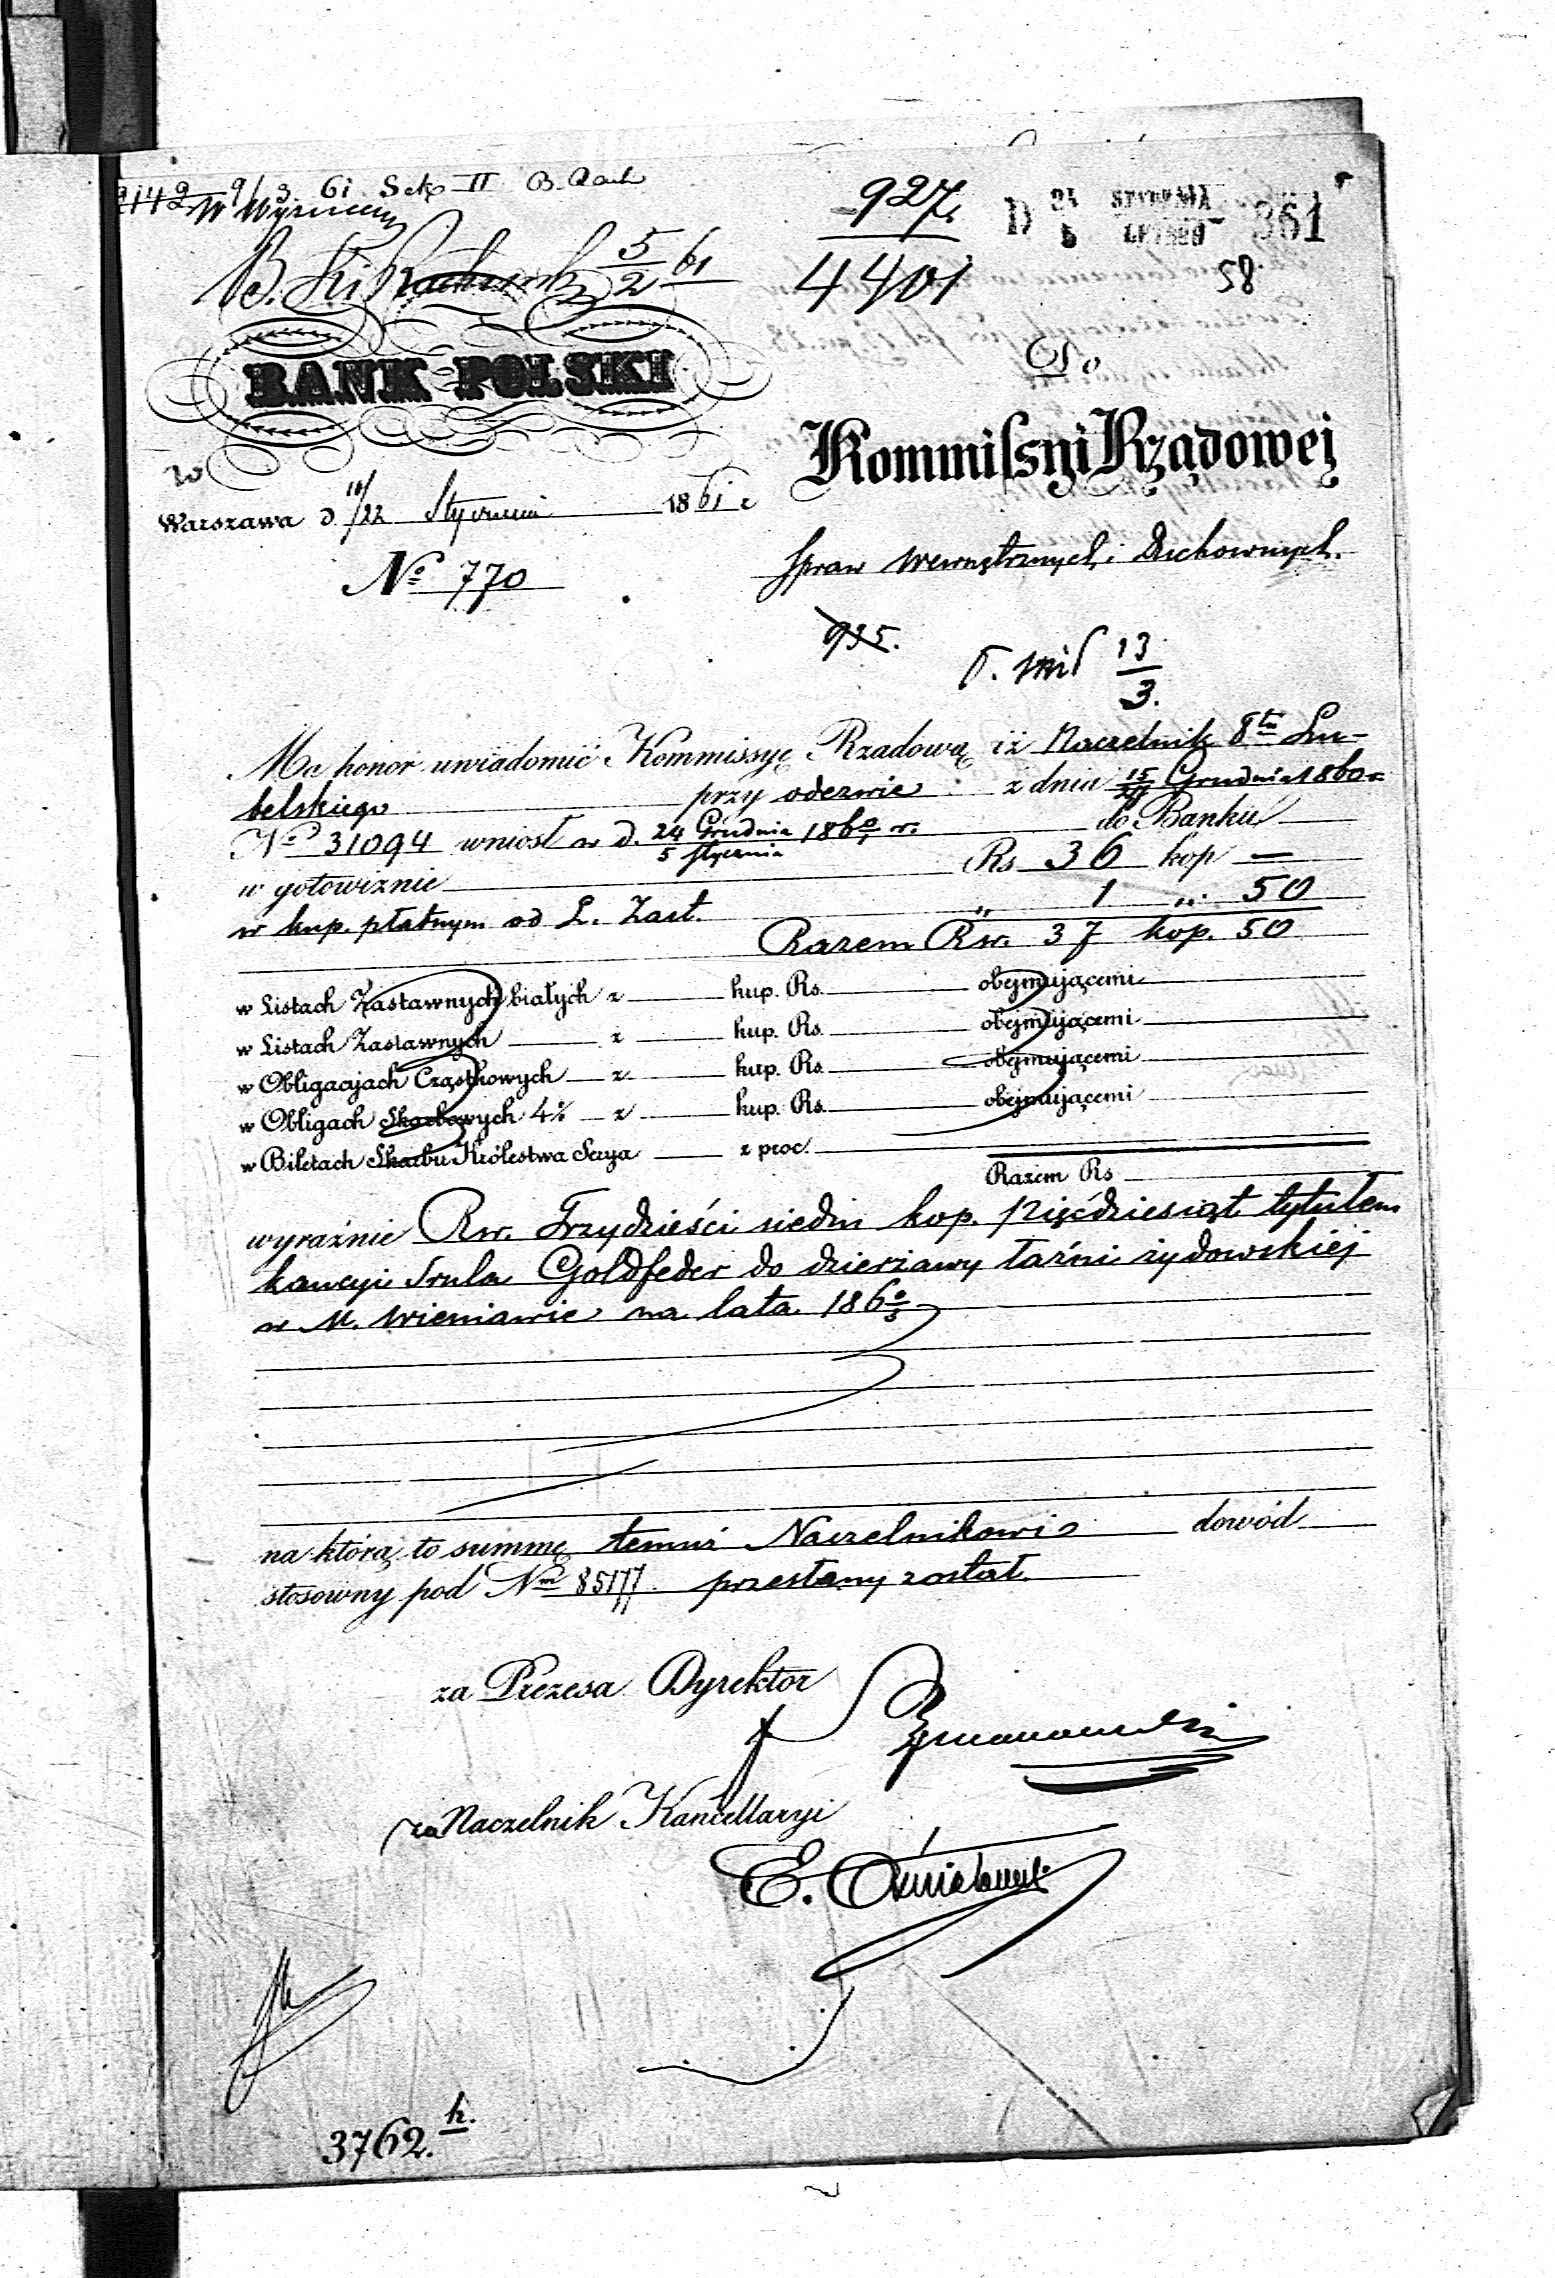 9142 9/3 61 Sek II
W Wydziale
5/2 61
927.
4401
D 24 STYCZNIA
5 LUTEGO 861
58
BANK POLSKI
w
Warszawa d. 10/22 Stycznia 1861 r
No 770
Do
Kommissyi Rządowej
Spraw Wewnętrznych i Duchownych.
935.
13/3.
Ma honor uwiadomić Kommissyę Rządową iż Naczelnik 8tu Lu-
belskiego przy odezwie z dnia 15/27 Grudnia 1860 r
No 31094 wniosł w d. 24 Grudnia / 5 Stycznia 1860/1 r. do Banku
w gotowiznie Rs 36 kop —
w kup. płatnym od L. Zast. „ 1 „ 50
Razem Rsr. 37 kop. 50
w Listach Zastawnych białych z kup. Rs. obejmującemi
w Listach Zastawnych z kup. Rs. obejmującemi
w Obligacyjach Cząstkowych z kup. Rs. obejmującemi
w Obligach Skarbowych 4% z kup. Rs. obejmującemi
w Biletach Skarbu Królestwa Serya z proc.
Razem Rs
wyraźnie Rsr. Trzydzieści siedm kop. pięćdziesiąt tytułem
kaucyi Srula Goldfeder do dzierżawy łaźni żydowskiej
w M. Wieniawie na lata 1860/3
na którą to summę temuż Naczelnikowi dowód
stosowny pod Nm 85177 przesłany został.
za Prezesa Dyrektor
za Naczelnik Kancellaryi
E.
3762. h.